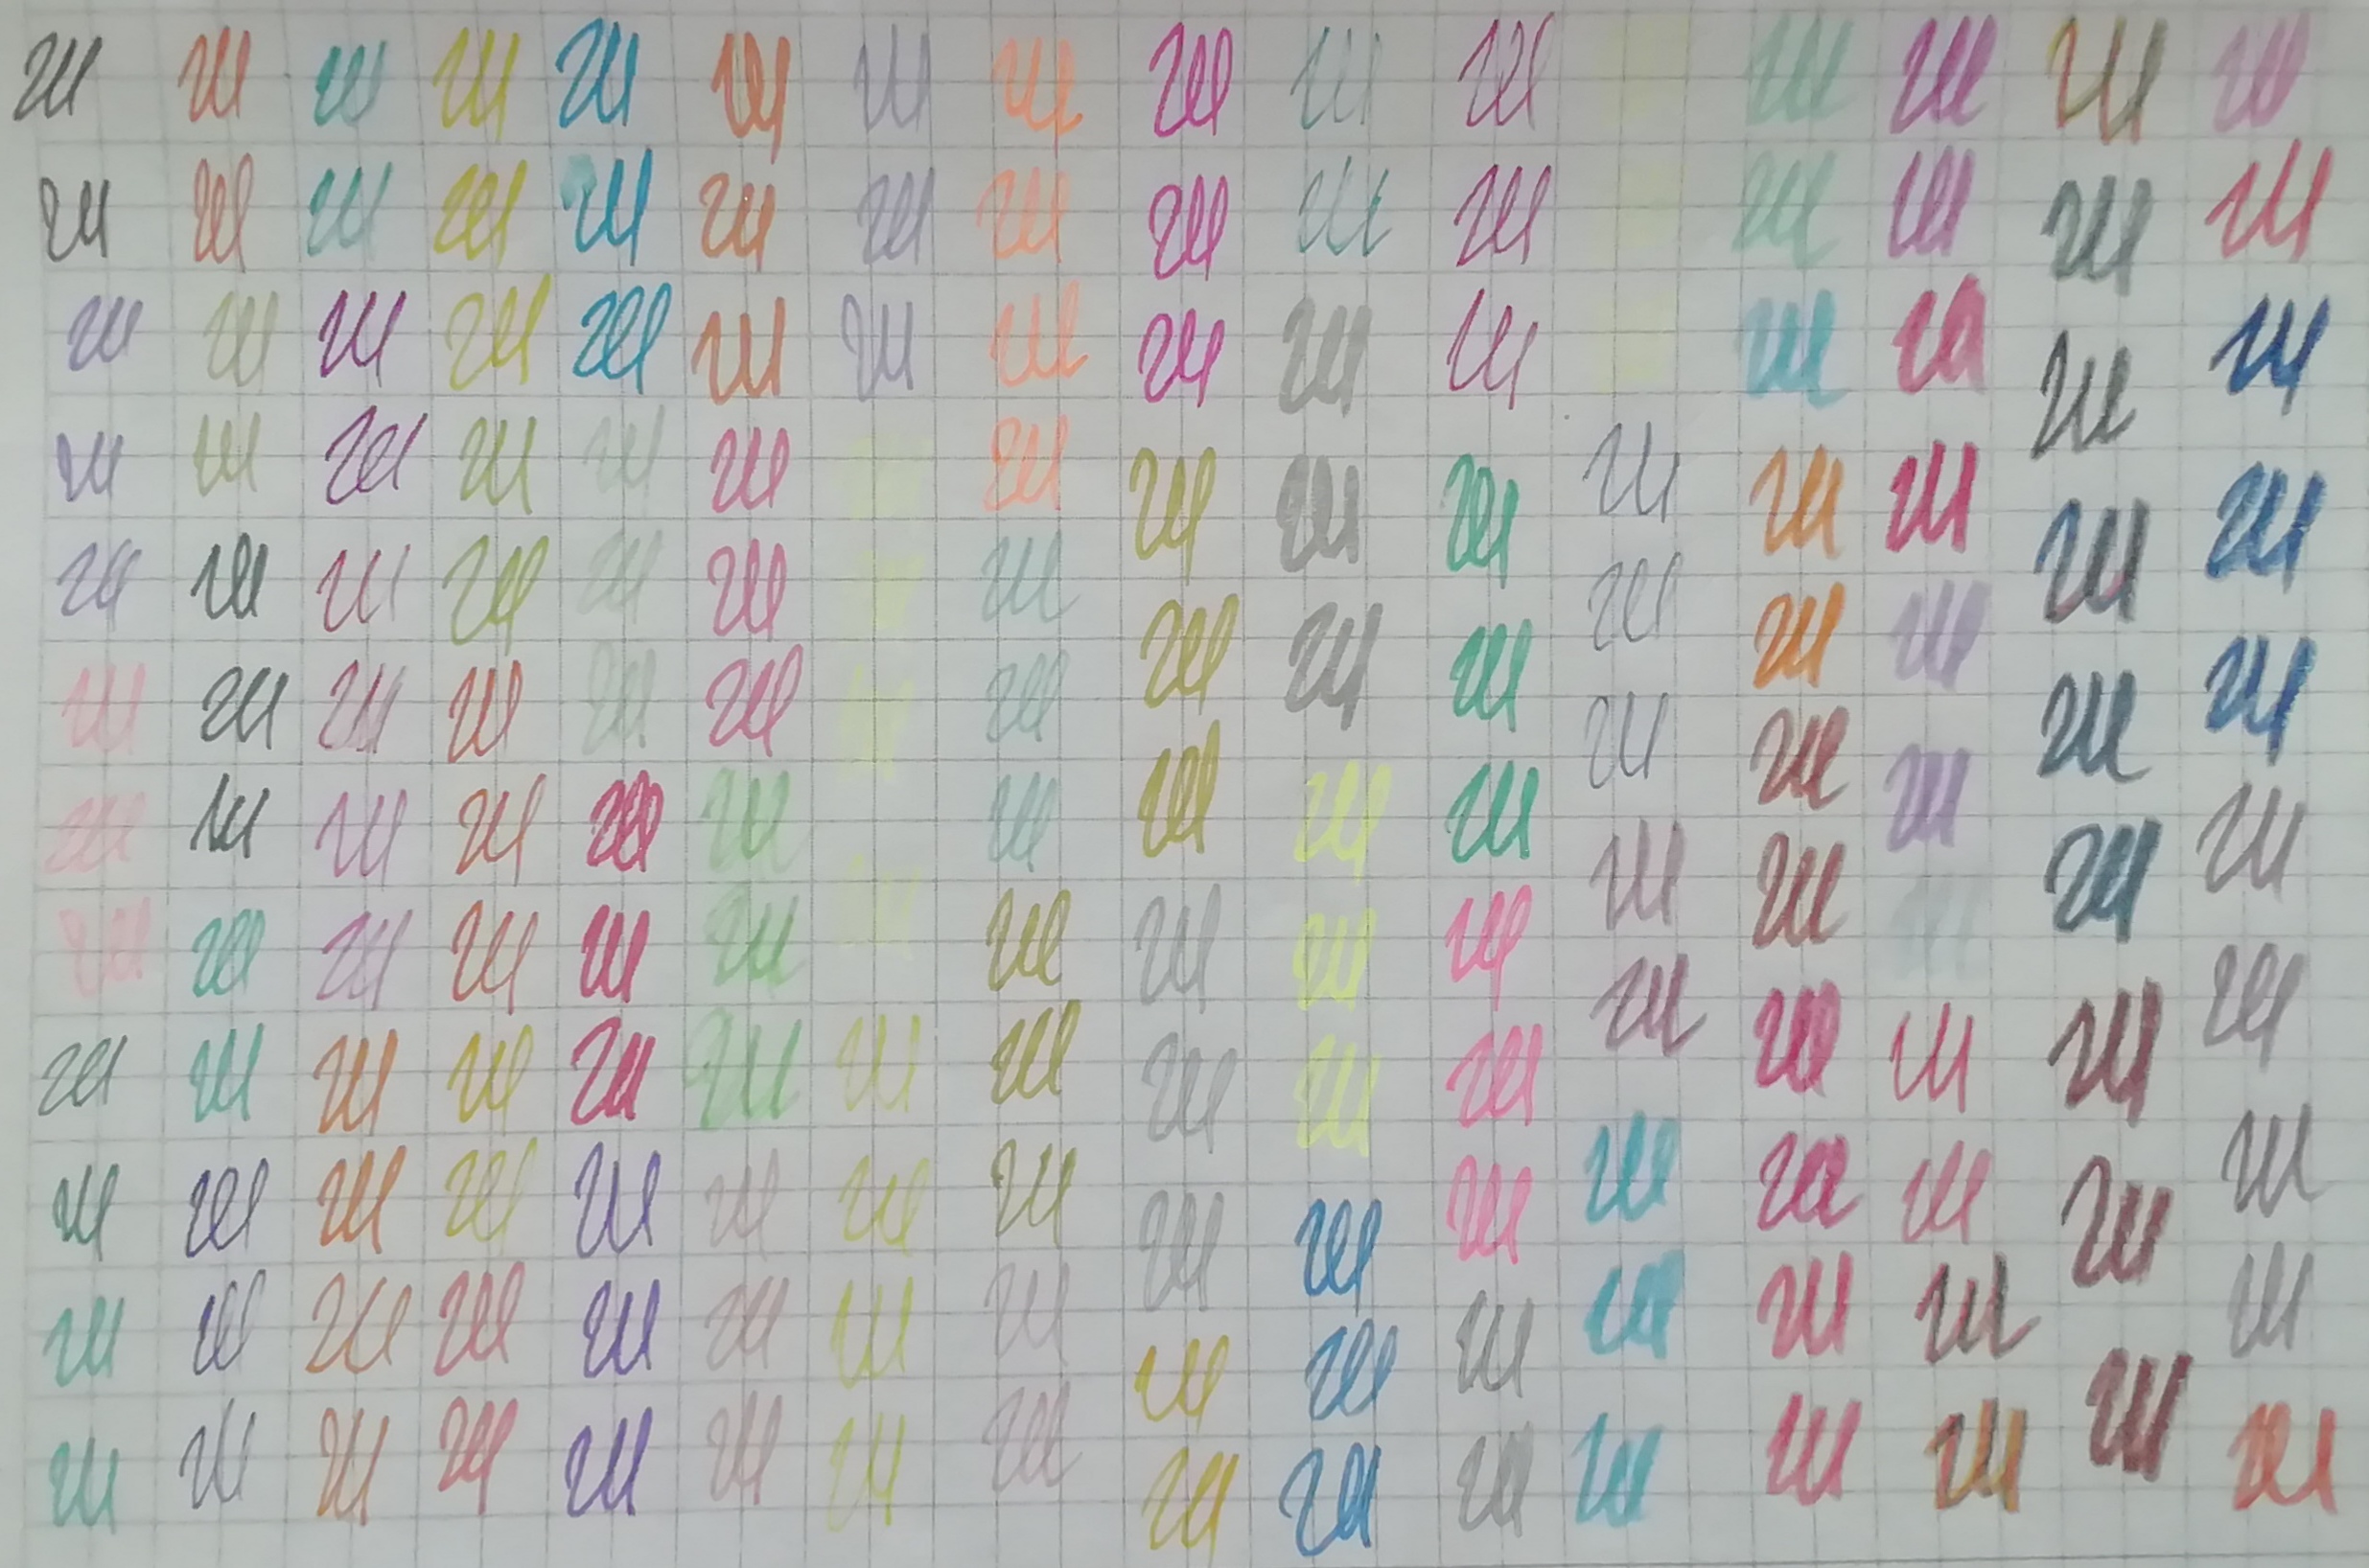 ш ш ш ш ш ш ш ш ш ш ш ш ш ш ш
ш ш ш ш ш ш ш ш ш ш ш ш ш ш ш
ш ш ш ш ш ш ш ш ш ш ш ш ш ш ш
ш ш ш ш ш ш ш ш ш ш ш ш ш ш ш
ш ш ш ш ш ш ш ш ш ш ш ш ш ш ш
ш ш ш ш ш ш ш ш ш ш ш ш ш ш ш
ш ш ш ш ш ш ш ш ш ш ш ш ш ш ш
ш ш ш ш ш ш ш ш ш ш ш ш ш ш
ш ш ш ш ш ш ш ш ш ш ш ш ш ш ш ш
ш ш ш ш ш ш ш ш ш ш ш ш ш ш ш ш
ш ш ш ш ш ш ш ш ш ш ш ш ш ш ш
ш ш ш ш ш ш ш ш ш ш ш ш ш ш ш ш